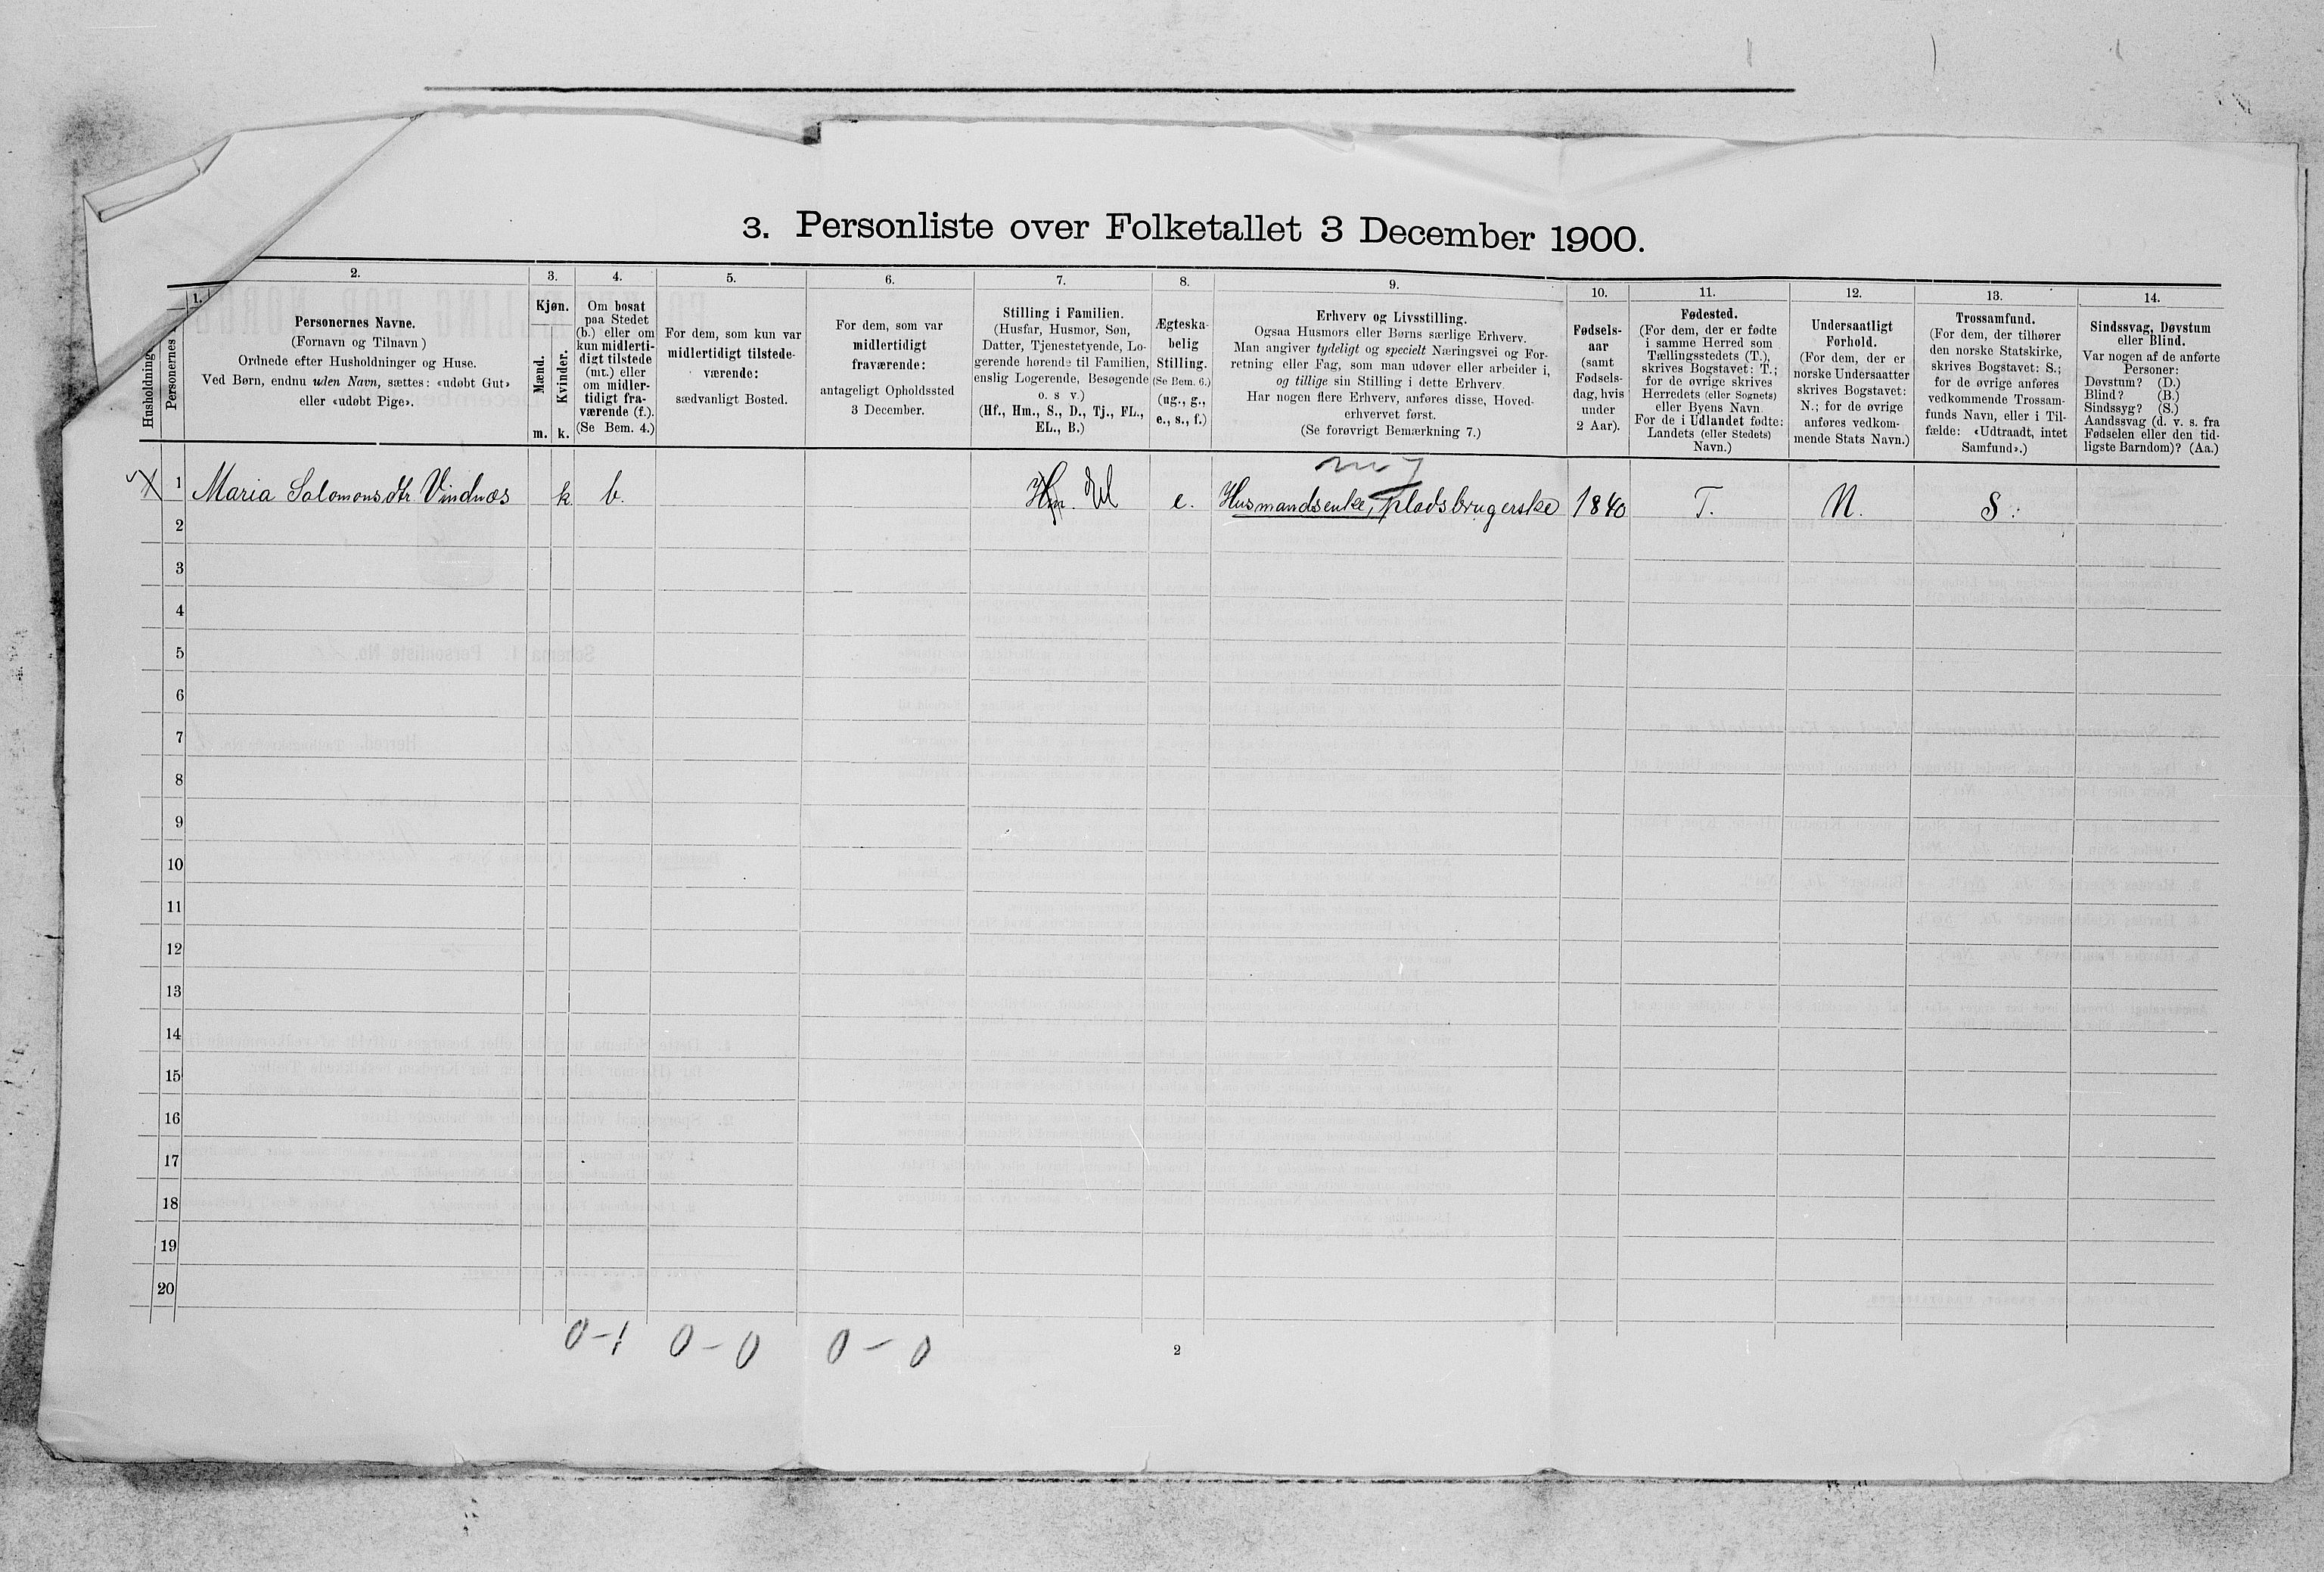 3. Personliste over Folketallet 3 December 1900.
1.
2.
3.
4.
5.
6.
7.
8.
9.
10.
11.
12.
13.
14.
Husholdning
Personernes
Personernes Navne.
(Fornavn og Tilnavn)
Ordnede efter Husholdninger og Huse.
Ved Børn, endnu uden Navn, sættes: «udøbt Gut»
eller «udøbt Pige».
Kjøn.
Mænd.
Kvinder.
m.
k.
Om bosat
paa Stedet
(b.) eller om
kun midlerti-
digt tilstede
(mt.) eller
om midler-
tidigt fra-
værende (f.).
(Se Bem. 4.)
For dem, som kun var
midlertidigt tilstede-
værende:
sædvanligt Bosted.
For dem, som var
midlertidigt
fraværende:
antageligt Opholdssted
3 December.
Stilling i Familien.
(Husfar, Husmor, Søn,
Datter, Tjenestetyende, Lo-
gerende hørende til Familien,
enslig Logerende, Besøgende
o. s. v.)
(Hf., Hm., S., D., Tj., FL.,
EL., B.)
Ægteska-
belig
Stilling.
(Se Bem. 6.)
(ug., g.,
e., s., f.)
Erhverv og Livsstilling.
Ogsaa Husmors eller Børns særlige Erhverv.
Man angiver tydeligt og specielt Næringsvei og For-
retning eller Fag, som man udøver eller arbeider i,
og tillige sin Stilling i dette Erhverv.
Har nogen flere Erhverv, anføres disse, Hoved-
erhvervet først.
(Se forøvrigt Bemærkning 7.)
Fødsels-
aar
(samt
Fødsels-
dag, hvis
under
2 Aar).
Fødested.
(For dem, der er fødte
i samme Herred som
Tællingsstedets (T.),
skrives Bogstavet: T.;
for de øvrige skrives
Herredets (eller Sognets)
eller Byens Navn.
For de i Udlandet fødte:
Landets (eller Stedets)
Navn.)
Undersaatligt
Forhold.
(For dem, der er
norske Undersaatter
skrives Bogstavet:
N.; for de øvrige
anføres vedkom-
mende Stats Navn.)
Trossamfund.
(For dem, der tilhører
den norske Statskirke,
skrives Bogstavet: S.;
for de øvrige anføres
vedkommende Trossam-
funds Navn, eller i Til-
fælde: «Udtraadt, intet
Samfund».)
Sindssvag, Døvstum
eller Blind.
Var nogen af de anførte
Personer:
Døvstum? (D.)
Blind? (B.)
Sindssyg? (S.)
Aandssvag (d. v. s. fra
Fødselen eller den tid-
ligste Barndom)? (Aa.)
1 Maria Salomonsdtr Vindnæs k b. Hm. e. Husmandsenke, pladsbrugerske 1840 T. N. S.
2
3
4
5
6
7
8
9
10
11
12
13
14
15
16
17
18
19
20
0-1 0-0 0-0
2